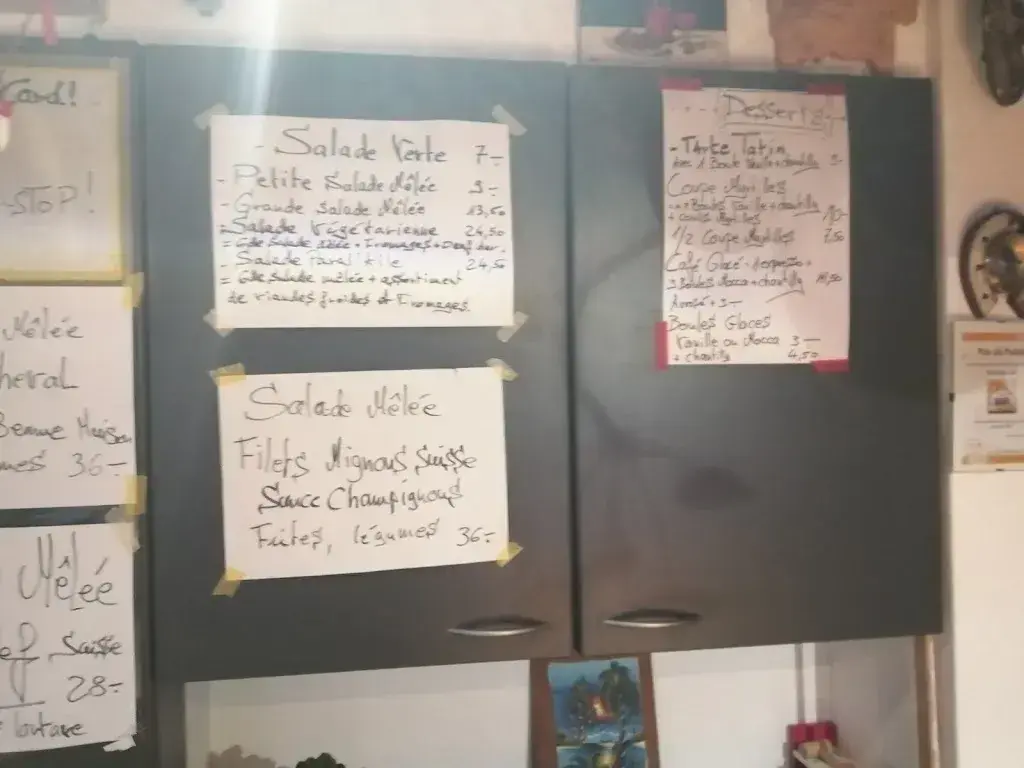 Card!
STOP!
Mêlée
36.-
Mêlée
Suisse
28.-
- Salade Verte 7.-
- Petite Salade Mêlée 9.-
- Grande Salade Mêlée 13,50
- Salade Végétarienne 24,50
= Gde Salade mêlée + Fromages + Oeuf dur.
- Salade 24,50
= Gde Salade mêlée + assortiment
de viandes froides et Fromages.
Salade Mêlée
Filets Mignons Suisse
Sauce Champignons
Frites, légumes 36.-
Desserts
- Tarte Tatin
Avec 1 Boule Vanille + chantilly 9.-
Coupe Myrtilles
Boules Vanille + chantilly
+ coulis Myrtilles 10.-
1/2 Coupe Myrtilles 7,50
Café Glacé
3 Boules Mocca + chantilly
+ 3.-
Boules Glaces
Vanille ou Mocca 3.-
+ chantilly 4,50